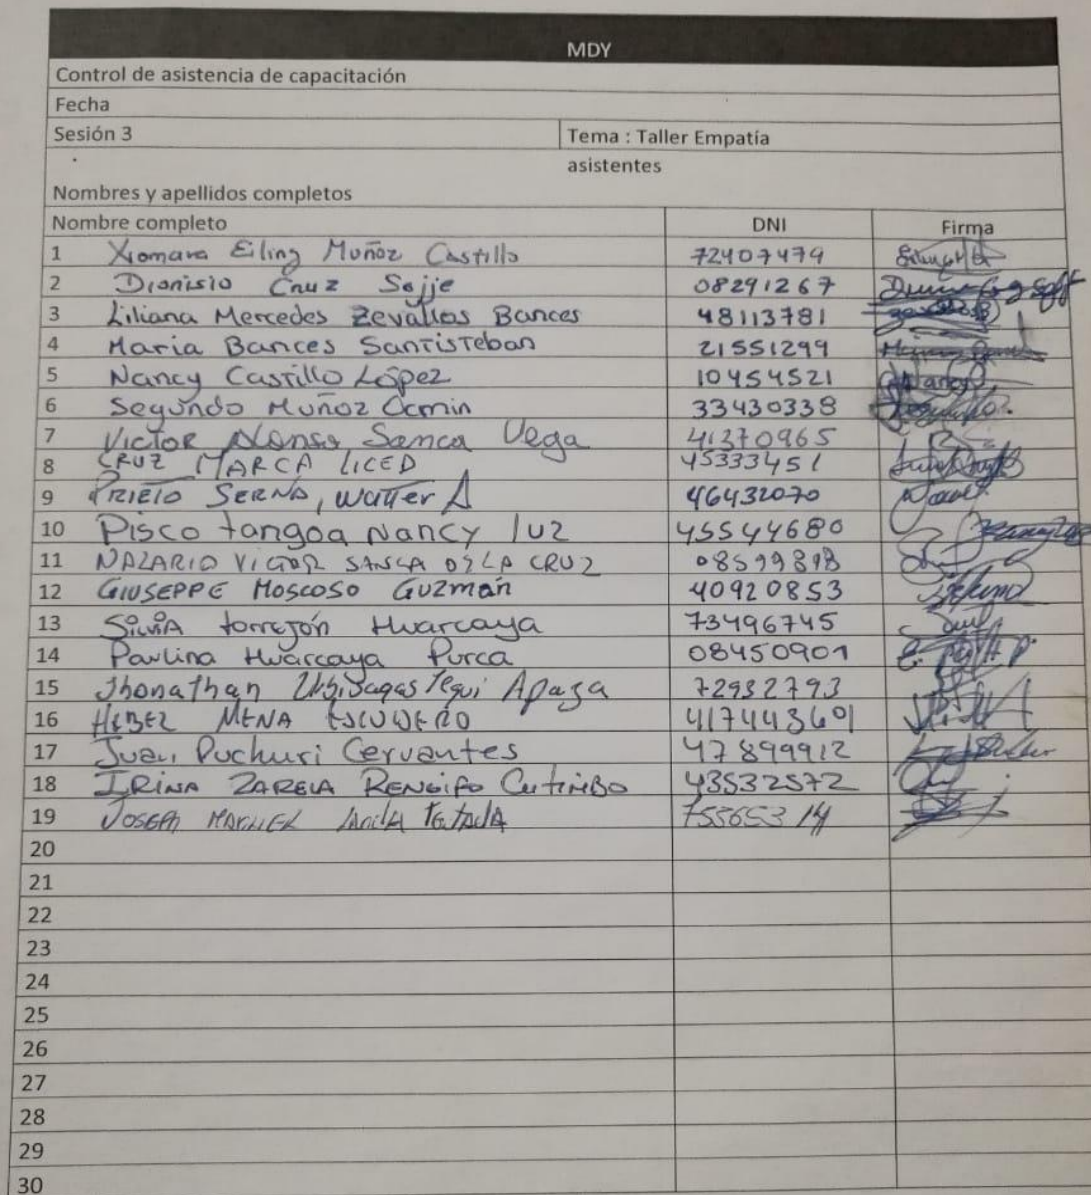 MDY
Control de asistencia de capacitación
Fecha
Sesión 3 Tema : Taller Empatía
asistentes
Nombres y apellidos completos
Nombre completo DNI Firma
1 Xiomara Eiling Muñoz Castillo 72407479
2 Dionisio Cruz 08291267
3 Liliana Mercedes Zevallos Bances 48113781
4 Maria Bances Santisteban 21551299
5 Nancy Castillo López 10454521
6 Segundo Muñoz Ocmin 33430338
7 Victor Alonso Sanca Vega 41370965
8 CRUZ MARCA LICED 45333451
9 PRIETO SERNA, Walter A 46432070
10 Pisco tangoa Nancy luz 45544680
11 NAZARIO VICTOR SANCA DE LA CRUZ
12 GIUSEPPE Moscoso Guzmán 40920853
13 Silvia torrejón Huarcaya 73496745
14 Paulina Huarcaya Purca 08450901
15 Jhonathan Apaza 72932793
16 HEBER MENA ESCUDERO
17 Juan Puchuri Cervantes 47899912
18 IRINA ZARELA RENGIFO 43532572
19 JOSEPH MANUEL
20
21
22
23
24
25
26
27
28
29
30